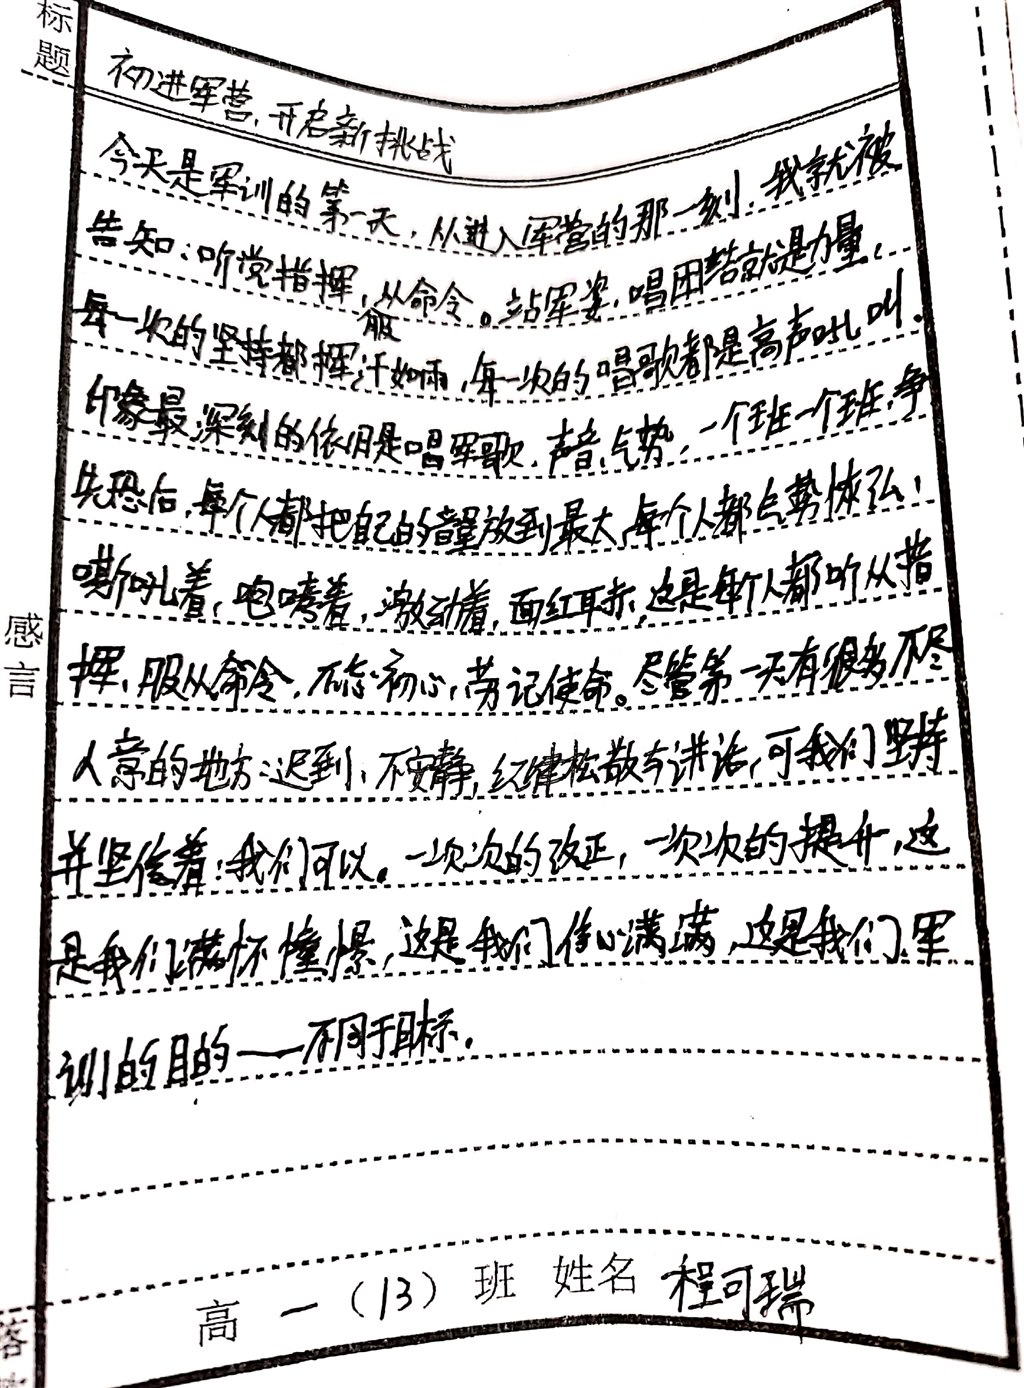 标题
初进军营,开启新挑战
今天是军训的第一天,从进入军营的那一刻,我就被
告知:听党指挥,服从命令。站军姿,唱团结就是力量,
每一次的坚持都挥汗如雨,每一次的唱歌都是高声吼叫。
印象最深刻的依旧是唱军歌,声音、气势,一个班一个班,争
先恐后,每个人都把自己的音量放到最大,每个人都气势恢弘!
嘶吼着,咆哮着,激动着,面红耳赤,这是每个人都听从指
挥,服从命令,不忘初心,劳记使命。尽管第一天有很多不尽
人意的地方:迟到、不安静,纪律松散与讲话,可我们坚持
并坚信着:我们可以。一次次的改正,一次次的提升,这
是我们满怀憧憬,这是我们信心满满,这是我们军
训的目的——不同于目标。
感言
高一(13)班 姓名 程可瑞